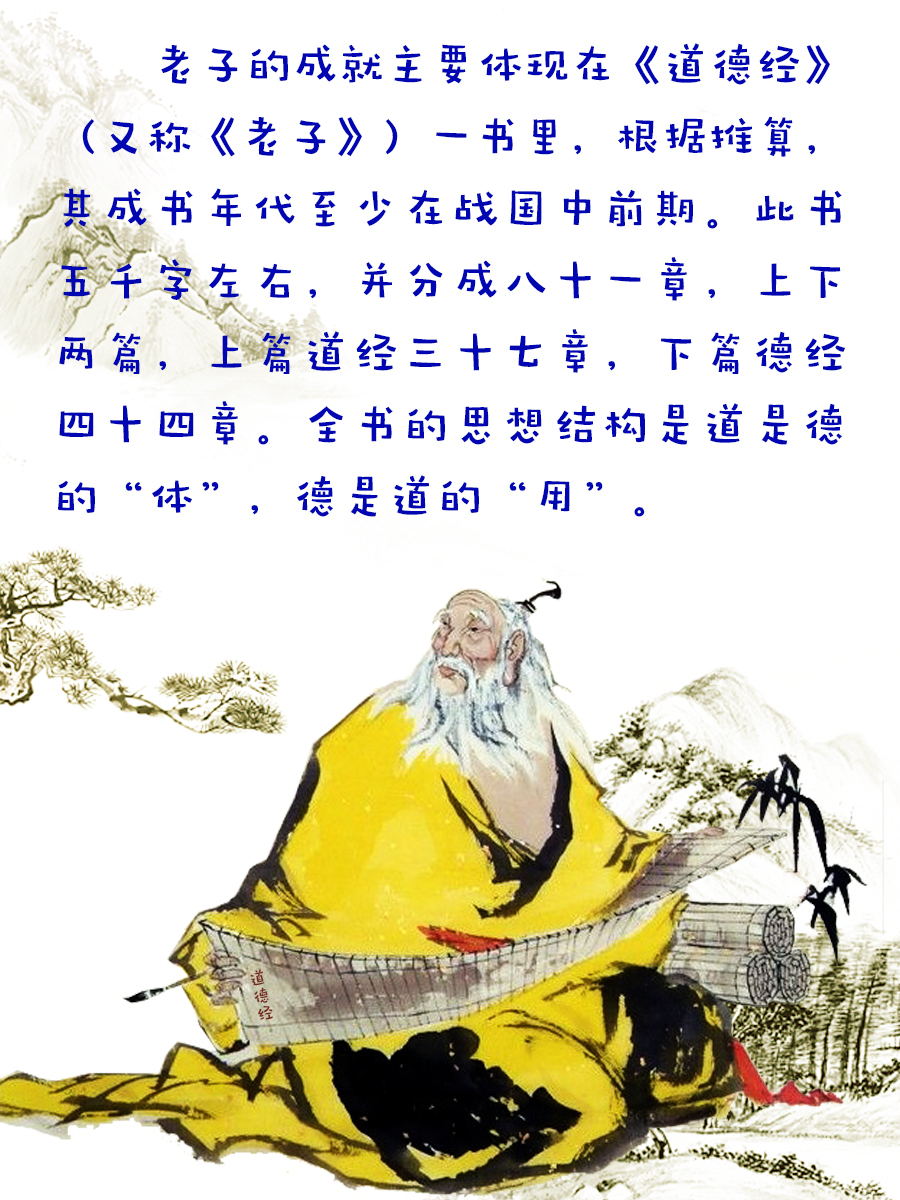 老子的成就主要体现在《道德经》
（又称《老子》）一书里，根据推算，
其成书年代至少在战国中前期。此书
五千字左右，并分成八十一章，上下
两篇，上篇道经三十七章，下篇德经
四十四章。全书的思想结构是道是德
的“体”，德是道的“用”。
道德经